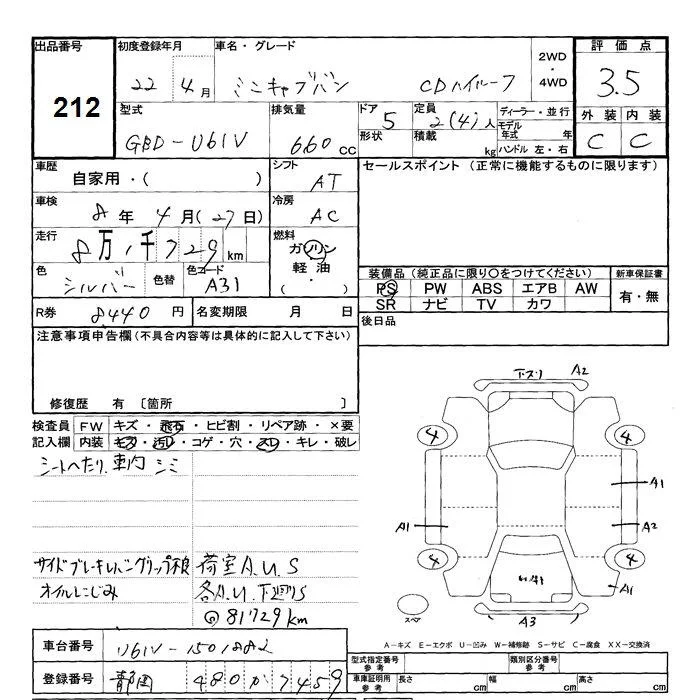 出品番号 初度登録年月 車名・グレード 2WD・4WD 評価点
212 22 4月 ミニキャブバン CDハイルーフ 3.5
型式 排気量 ドア 定員 ディーラー・並行 外装 内装
GBD-U61V 660cc 5 2(4)人 モデル年式 年 C C
形状 積載 kg ハンドル 左・右
車歴 シフト セールスポイント (正常に機能するものに限ります)
自家用・( ) AT
車検 冷房
8年4月(27日) AC
走行 燃料
8万1千729km ガソリン
色 色替 色コード 軽油・( )
シルバー A31
装備品 (純正品に限り○をつけてください) 新車保証書
PS PW ABS エアB AW 有・無
SR ナビ TV カワ
R券 8440円 名変期限 月 日 後日品
注意事項申告欄(不具合内容等は具体的に記入して下さい)
修復歴 有 〔箇所 〕
検査員 FW キズ・飛石・ヒビ割・リペア跡・×要
記入欄 内装 キズ・汚レ・コゲ・穴・スレ・キレ・破レ
シートへたり.車内シミ
サイドブレーキレバーグリップ欠 荷室A.U.S
オイルにじみ 各A.U.下廻りS
◎81729km
下スリ A2
4 4
A1
A1 A2
4 4
A1
スペア A3
A-キズ E-エクボ U-凹み W-補修跡 S-サビ C-腐食 XX-交換済
車台番号 U61V-1501882
型式指定番号 参考 類別区分番号 参考
登録番号 静岡 480か7459
車庫証明用 参考 長さ cm 幅 cm 高さ cm